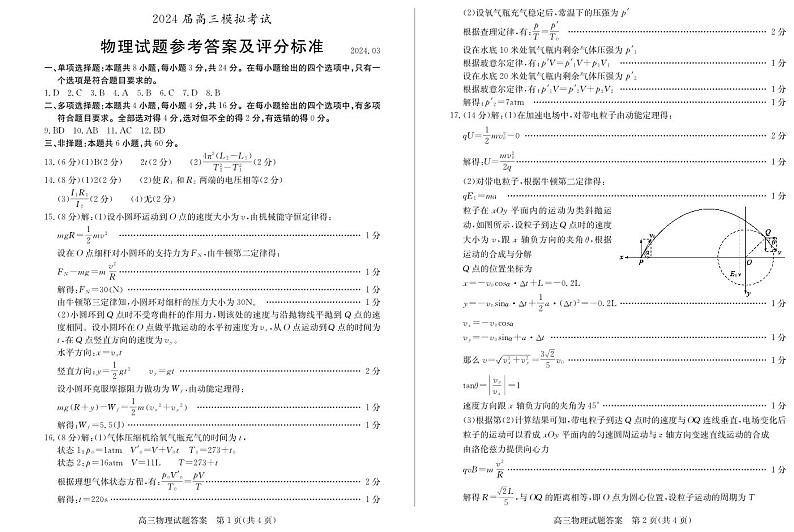 2024 届高三模拟考试
物理试题参考答案及评分标准 2024.03
一、单项选择题:本题共 8 小题,每小题 3 分,共 24 分。在每小题给出的四个选项中,只有一
个选项是符合题目要求的。
1.D 2.C 3.B 4.A 5.B 6.C 7.D 8.B
二、多项选择题:本题共 4 小题,每小题 4 分,共 16 分。在每小题给出的四个选项中,有多项
符合题目要求。全部选对得 4 分,选对但不全的得 2 分,有选错的得 0 分。
9.BD 10.AB 11.AC 12.BD
三、非选择题:本题共 6 小题,共 60 分。
13.(6 分)(1)B(2 分) 2t(2 分) (2) 4π²(L₂−L₁)/(T₂²−T₁²) (2 分)
14.(8 分)(1)2(2 分) (2)使 R₁ 和 R₂ 两端的电压相等(2 分)
(3) I₁R₁/I₂ (2 分) (4)无(2 分)
15.(8 分)解:(1)设小圆环运动到 O 点的速度大小为 v,由机械能守恒定律得:
mgR=1/2mv² 1 分
设在 O 点细杆对小圆环的支持力为 F_N,由牛顿第二定律得:
F_N−mg=m v²/R 1 分
解得:F_N=30(N) 1 分
由牛顿第三定律知,小圆环对细杆的压力大小为 30N。 1 分
(2)小圆环到 Q 点时不受弯曲杆的作用力,则该处的速度与沿抛物线平抛到 Q 点的速
度相同。设小圆环在 O 点做平抛运动的水平初速度为 vₓ,从 O 点运动到 Q 点的时间为
t,在 Q 点竖直方向的速度为 v_y。
水平方向:x=vₓt
竖直方向:y=1/2gt² v_y=gt 2 分
设小圆环克服摩擦阻力做功为 W_f,由动能定理得:
mg(R+y)−W_f=1/2m(vₓ²+v_y²) 1 分
解得:W_f=5.5(J) 1 分
16.(8 分)解:(1)气体压缩机给氧气瓶充气的时间为 t,
状态 1:p₀=1atm V′₀=V+V₀t T₀=273+t₀
状态 2:p=16atm V=11L T=273+t
根据理想气体状态方程,有:p₀V′₀/T₀=pV/T 2 分
解得:t=220s 1 分
高三物理试题答案 第 1 页(共 4 页)
(2)设氧气瓶充气稳定后,常温下的压强为 p′
根据查理定律,有:p/T=p′/T₀ 2 分
设在水底 10 米处氧气瓶内剩余气体压强为 p′₁
根据玻意尔定律,有:p′V=p′₁V+p₁V₁ 1 分
设在水底 20 米处氧气瓶内剩余气体压强为 p′₂
根据玻意尔定律,有:p′₁V=p′₂V+p₂V₂ 1 分
解得:p′₂=7atm 1 分
17.(14 分)解:(1)在加速电场中,对带电粒子由动能定理得:
qU=1/2mv₀²−0 2 分
解得:U=mv₀²/2q 1 分
(2)对带电粒子,根据牛顿第二定律得:
qE₁=ma 1 分
粒子在 xOy 平面内的运动为类斜抛运
动,如图所示,设粒子到达 Q 点时的速度
大小为 v,跟 x 轴负方向的夹角 θ,根据
运动的合成与分解
Q 点的位置坐标为
x=−v₀cosα·Δt+L=−0.2L
y=−v₀sinα·Δt+1/2a·(Δt)²=−0.2L 1 分
vₓ=−v₀cosα
v_y=−v₀sinα+a·Δt 1 分
那么 v=√(vₓ²+v_y²)=3√2/5 v₀ 1 分
tanθ=|v_y/vₓ|=1
速度方向跟 x 轴负方向的夹角为 45° 1 分
(3)根据第(2)计算结果可知,带电粒子到达 Q 点时的速度与 OQ 连线垂直,电场变化后
粒子的运动可以看成 xOy 平面内的匀速圆周运动与 z 轴方向变速直线运动的合成
由洛伦兹力提供向心力
qvB=m v²/R 1 分
解得 R=√2L/5,与 OQ 的距离相等,即 O 点为圆心位置,设粒子运动的周期为 T
高三物理试题答案 第 2 页(共 4 页)